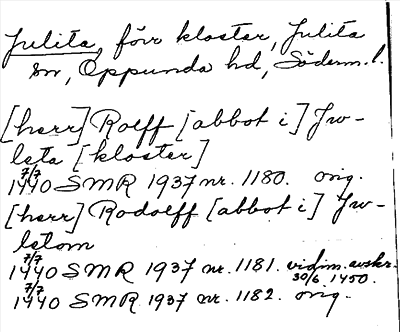 Julita, förr kloster, Julita
sn, Oppunda hd, Söderm. l.
[herr] Rolff [abbot i] Jw-
leta [kloster]
7/7
1440 SMR 1937 nr. 1180. orig.
[herr] Rodolff [abbot i] Jw-
letom
7/7
1440 SMR 1937 nr. 1181. vidim. avskr.
30/6 1450.
7/7
1440 SMR 1937 nr. 1182. orig.